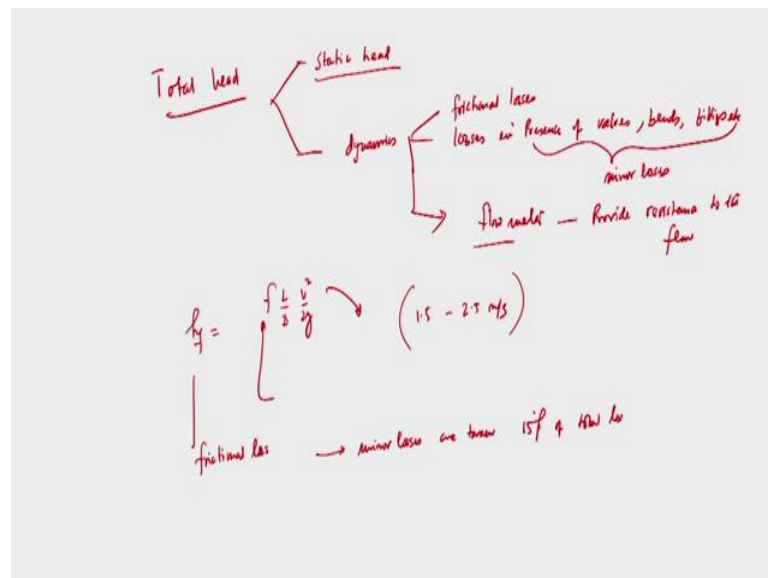 Total head
Static head
dynamics
frictional losses
losses in Presence of valves, bends, fittings etc
minor losses
flow meter — Provide resistance to the
flow
hf = f L/D V²/2g (1.5 - 2.5 m/s)
frictional loss → minor losses are taken 15% of total loss